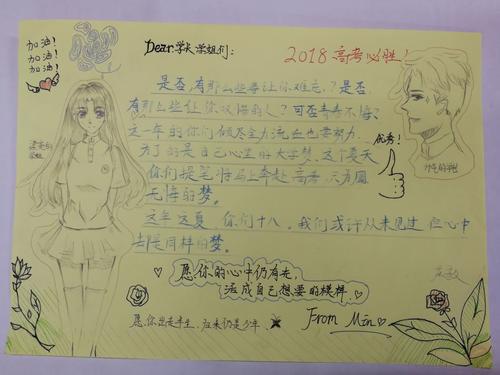 加油!
加油!
加油!
Dear:学长学姐们:
2018高考必胜!
是否,有那么些事让你难忘?是否,
有那么些让你
的人?可否青春不悔?
这一年的你们倾尽全力流血也要努力.
为了的是自己心里的大学梦.这个夏天
你们提笔将马上奔赴高考,只有圆
无悔的梦.
这年这夏 你们十八.我们或许从未见过 但心中
同样的梦.
优秀!
愿你的心中仍有光,
活成自己想要的模样.
愿你出走半生,归来仍是少年.
From Min